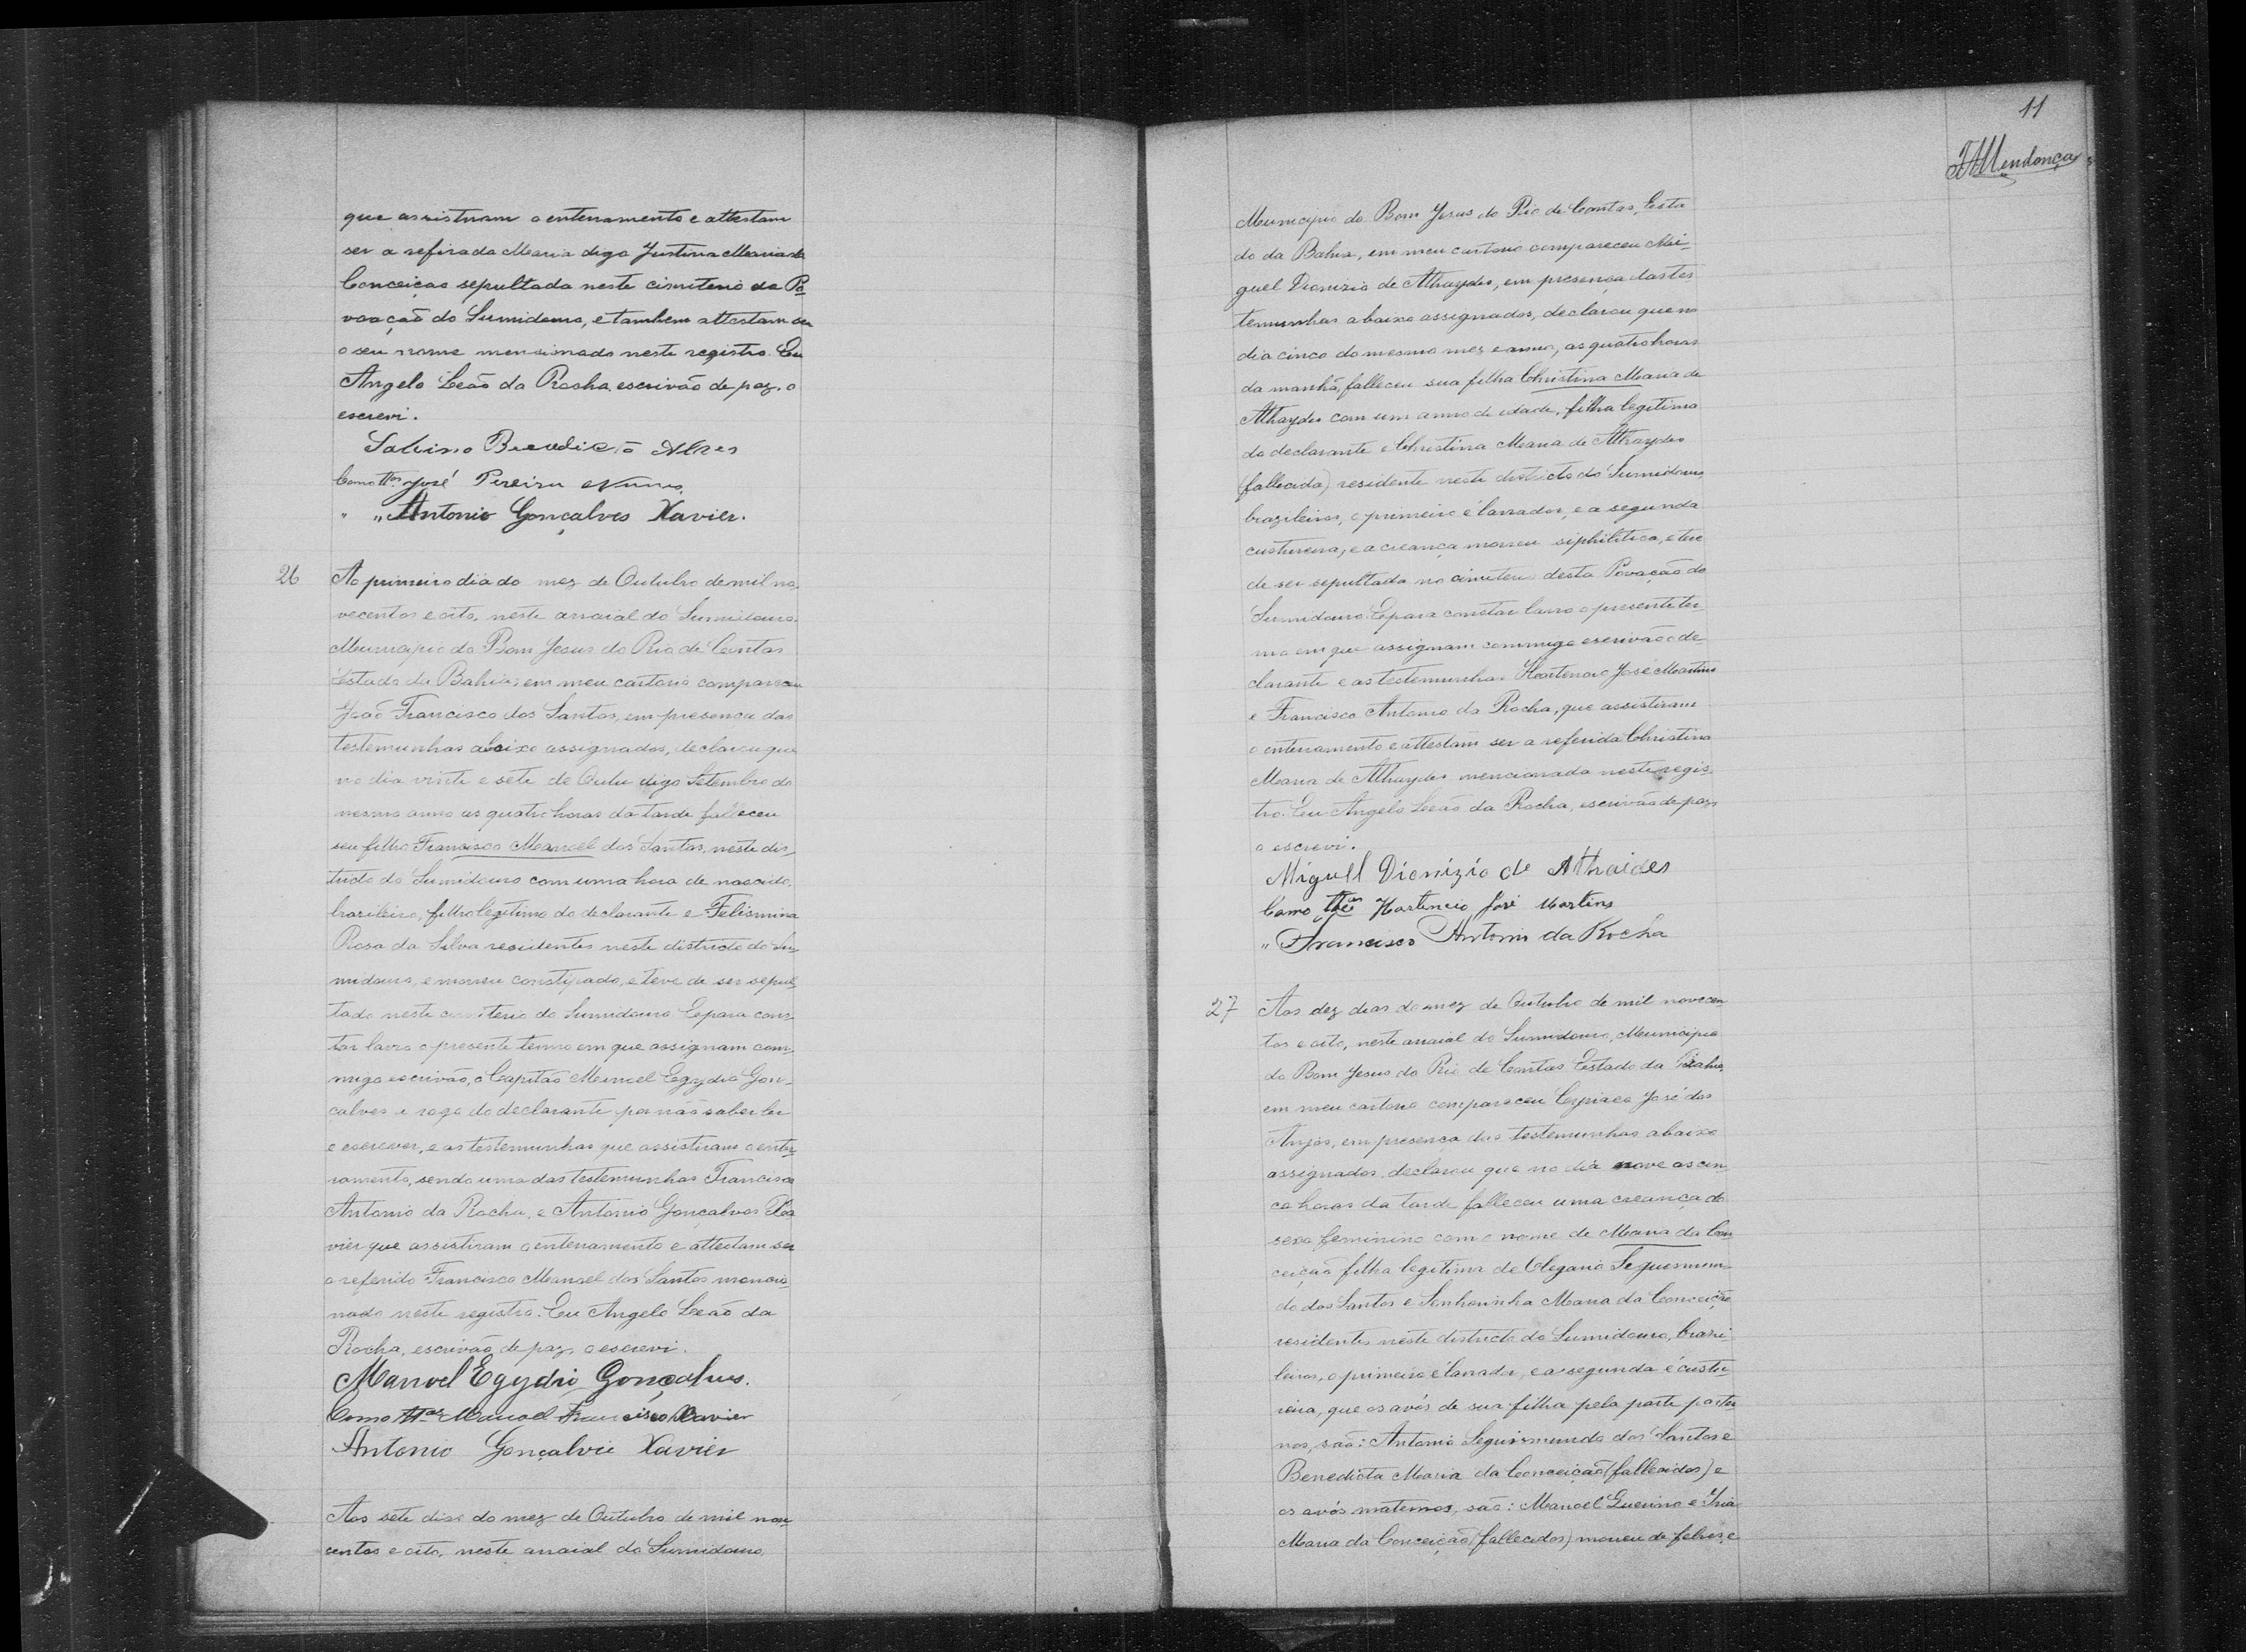 que assistiram o enterramento e attestam
ser a referida Maria digo Justina Maria da
Conceiçao sepultada neste cimiterio da Po
voação do Sumidouro, e tambem attestam ser
o seu nome mensionado neste registro. Eu
Angelo Leão da Rocha, escrivão de paz, o
escrevi.
Sabino Benedicto Alves
Como ttas José Pereira Nunes,
" " Antonio Gonçalves Xavier.
26 Ao primeiro dia do mez de Outubro de mil no,
vecentos e oito, neste arraial do Sumidouro,
Municipio do Bom Jesus do Rio de Contas
Estado da Bahia; em meu cartorio compareceu
João Francisco dos Santos, em presença das
testemunhas abaixo assignadas, declarou que
no dia vinte e sete de Outu digo Setembro do
mesmo anno as quatro horas da tarde falleceu
seu filho Francisco Manoel dos Santos, neste dis,
tricto do Sumidouro com uma hora de nascido,
brazileiro, filho legitimo do declarante e Felismina
Rosa da Silva residentes neste districto do Su,
midouro, e morreu constipado, e teve de ser sepul,
tado neste cimiterio do Sumidouro E para cons,
tar lavro o presente termo em que assignam com,
migo escrivão, o Capitão Manoel Egydio Gon,
çalves a rogo do declarante por não saber ler
e escrever, e as testemunhas que assistiram o enter,
ramento, sendo uma das testemunhas Francisco
Antonio da Rocha, e Antonio Gonçalves Xa
vier que assistiram o enterramento e attestam ser
o referido Francisco Manoel dos Santos mencio
nado neste registro. Eu Angelo Leão da
Rocha, escrivão de paz, o escrevi.
Manoel Egydio Gonçalves.
Como ttas Manoel Francisco Xavier
Antonio Gonçalvis Xavier
Aos sete dias do mez de Outubro de mil nove
centos e oito, neste arraial do Sumidouro,
11
FAMendonça
Municipio do Bom Jesus do Rio de Contas, Esta
do da Bahia, em meu cartorio compareceu Mi-
guel Dionizio de Athaydes, em presença das tes
temunhas abaixo assignadas, declarou que no
dia cinco do mesmo mez e anno, as quatro horas
da manhã, falleceu sua filha Christina Maria de
Athaydes com um anno de idade, filha legitima
do declarante e Christina Maria de Athaydes
(fallecida) residente neste districto do Sumidouro,
brazileiros, o primeiro é lavrador, e a segunda
custureira, e a creança morreu siphilitica, e teve
de ser sepultada no cimiterio desta Povoação do
Sumidouro. E para constar lavro o presente ter
mo em que assignam commigo escrivão o de-
clarante e as testemunhas Hortencio José Martins
e Francisco Antonio da Rocha, que assistiram
o enterramento e attestam ser a referida Christina
Maria de Athaydes mencionada neste regis-
tro. Eu Angelo Leão da Rocha, escrivão de paz
o escrevi.
Miguell Dionizio de Athaides
Como ttas Hortencio José Martins
" Francisco Antonio da Rocha
27 Aos dez dias do mez de Outubro de mil novecen
tos e oito, neste arraial do Sumidouro, Municipio
do Bom Jesus do Rio de Contas Estado da Bahia,
em meu cartorio compareceu Cypriano José dos
Anjos, em presença das testemunhas abaixo
assignadas, declarou que no dia nove as cin
co horas da tarde falleceu uma creança do
sexo feminino com o nome de Maria da Con
ceição filha legitima de Olegario Seguesmun-
do dos Santos e Senhorinha Maria da Conceição
residentes neste districto do Sumidouro, brazi
leiros, o primeiro é lavrador, e a segunda é custu
reira, que os avós de sua filha pela parte pater
nos, são: Antonio Seguismundo dos Santos e
Benedicta Maria da Conceição (fallecidos) e
os avós maternos, são: Manoel Guerino e Iria
Maria da Conceição (fallecidos) morreu de febres, e